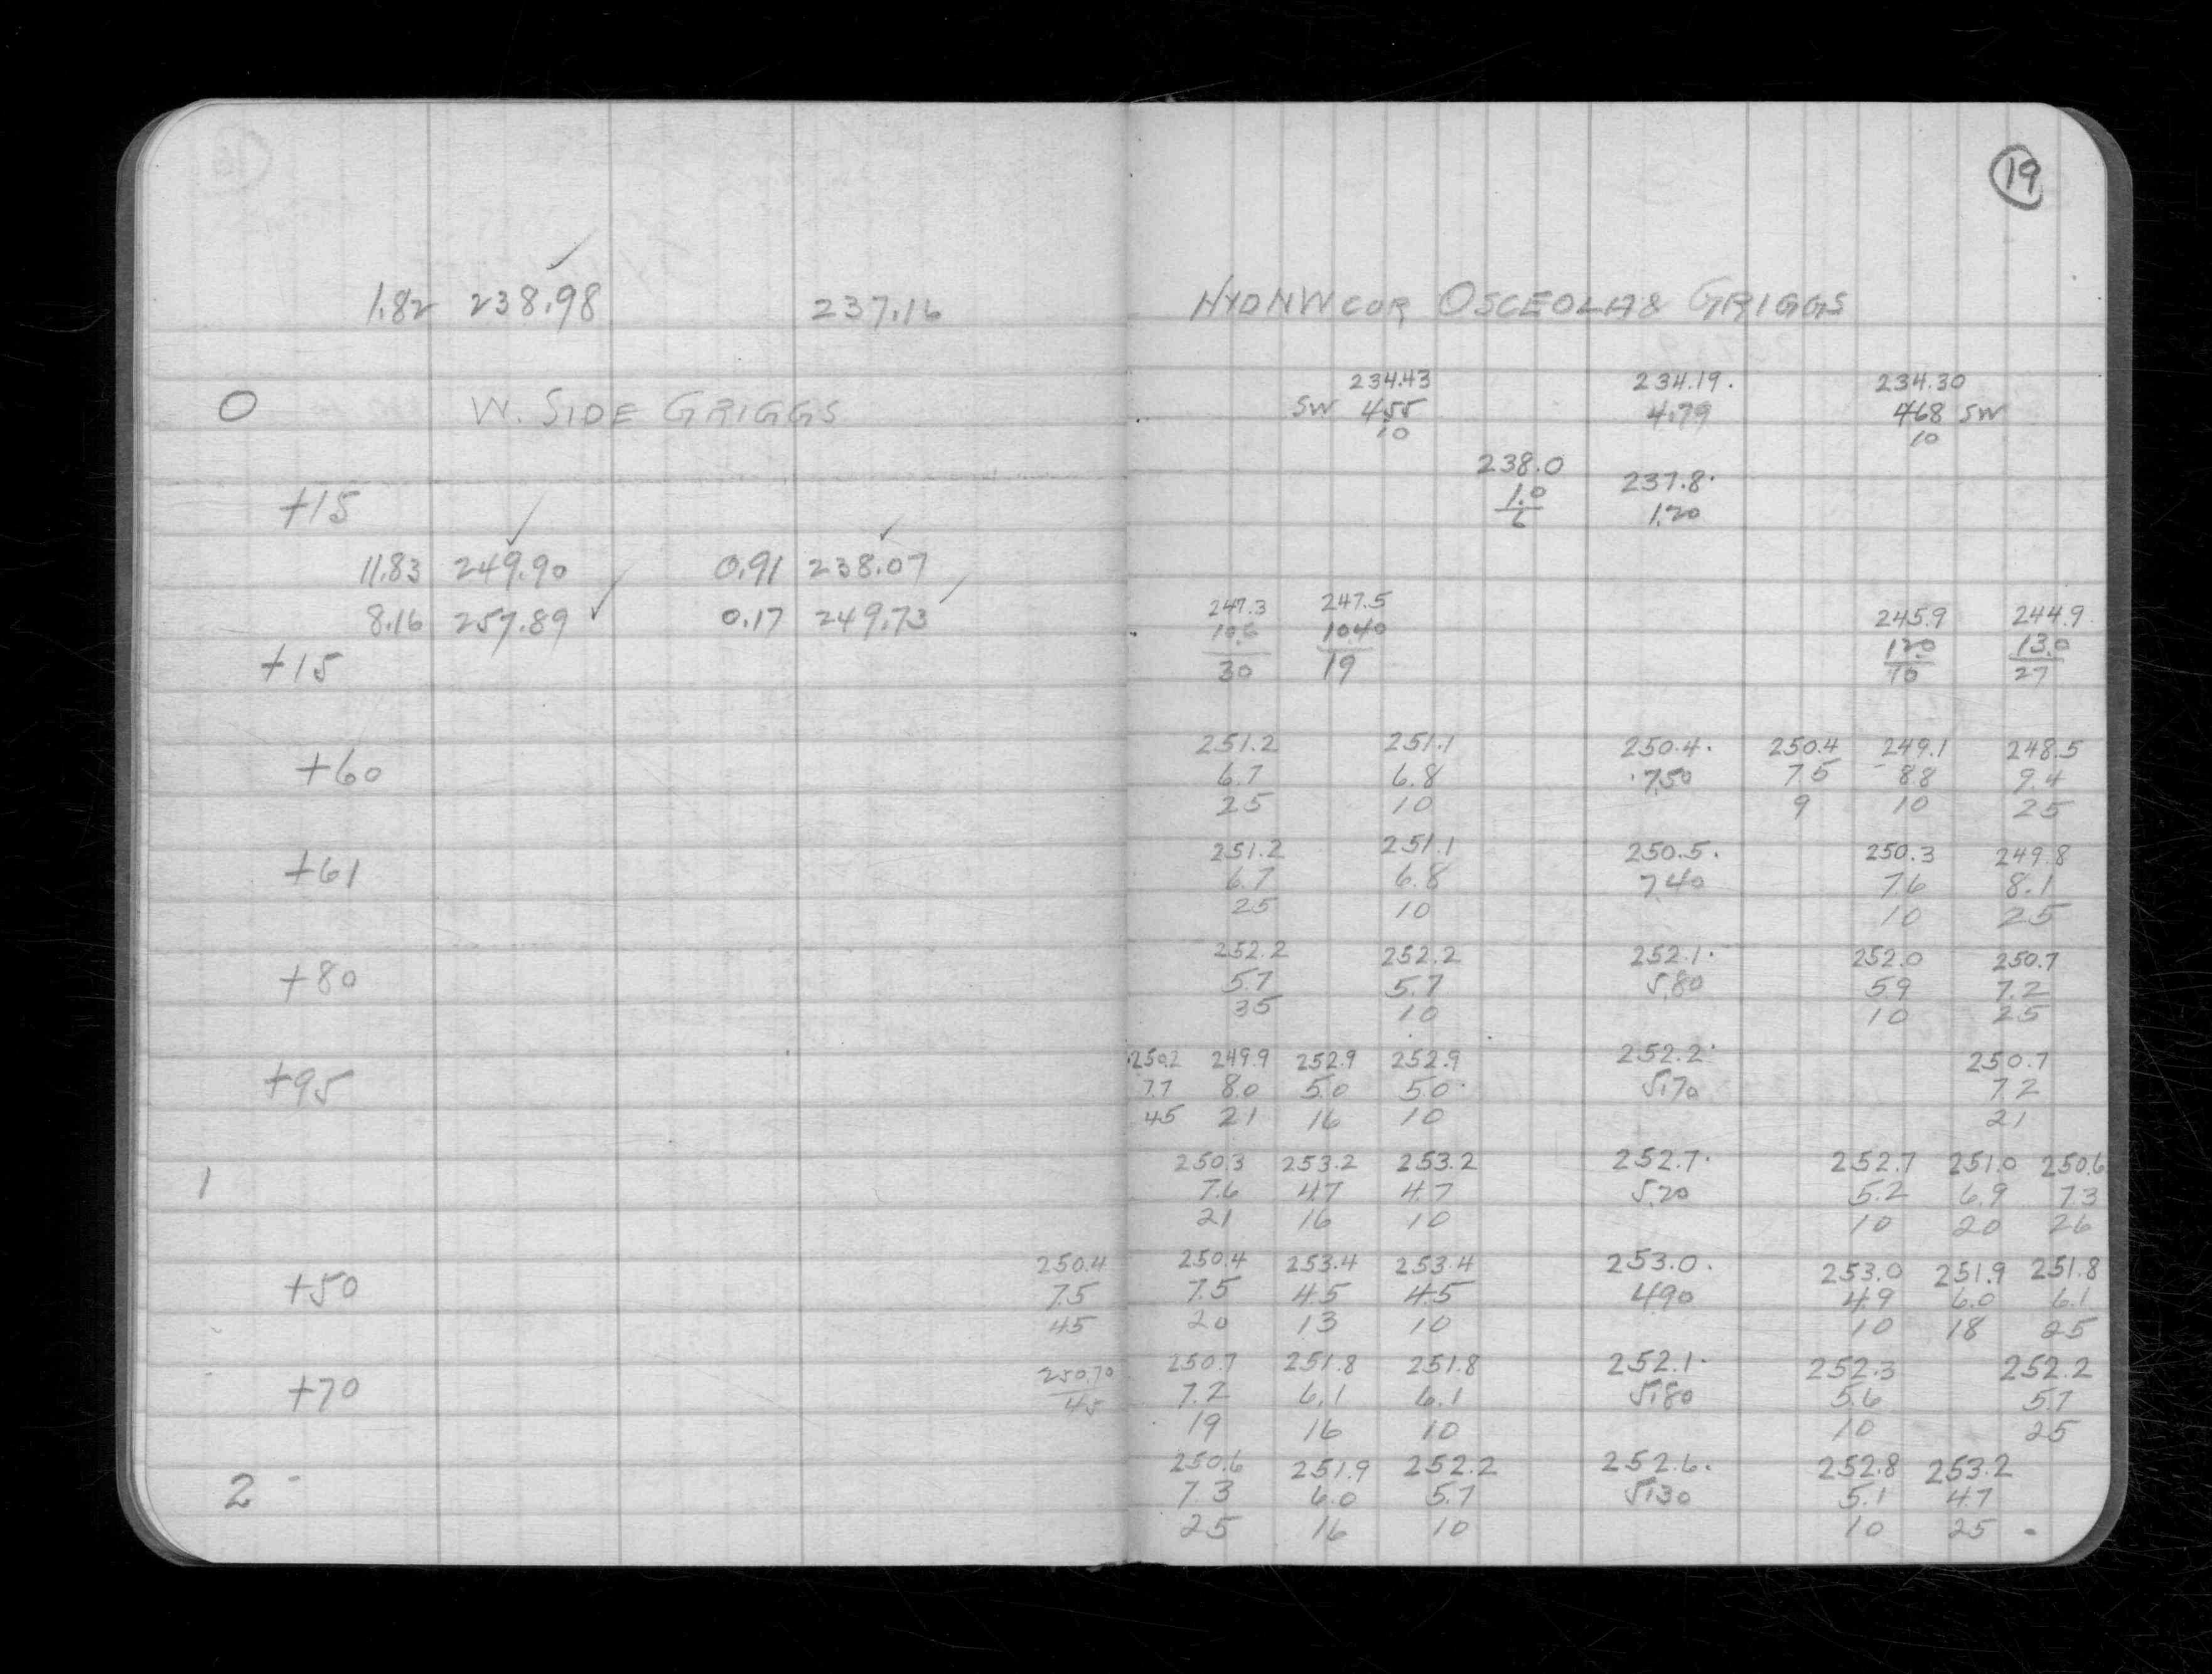 19
1.82 238.98 237.16 HYD NW COR OSCEOLA & GRIGGS
234.43 234.19. 234.30
0 W. SIDE GRIGGS SW 4.55 4.79 4.68 SW
10 10
238.0 237.8.
+15 1.0 1.20
6
11.83 249.90 0.91 238.07
247.3 247.5 245.9 244.9
8.16 257.89 0.17 249.73 10.6 10.40 12.0 13.0
+15 30 19 10 27
251.2 251.1 250.4. 250.4 249.1 248.5
+60 6.7 6.8 7.50 7.5 8.8 9.4
25 10 9 10 25
251.2 251.1 250.5. 250.3 249.8
+61 6.7 6.8 7.40 7.6 8.1
25 10 10 25
252.2 252.2 252.1. 252.0 250.7
+80 5.7 5.7 5.80 5.9 7.2
35 10 10 25
250.2 249.9 252.9 252.9 252.2. 250.7
+95 7.7 8.0 5.0 5.0 5.70 7.2
45 21 16 10 21
250.3 253.2 253.2 252.7. 252.7 251.0 250.6
1 7.6 4.7 4.7 5.20 5.2 6.9 7.3
21 16 10 10 20 26
250.4 250.4 253.4 253.4 253.0. 253.0 251.9 251.8
+50 7.5 7.5 4.5 4.5 4.90 4.9 6.0 6.1
45 20 13 10 10 18 25
250.70 250.7 251.8 251.8 252.1. 252.3 252.2
+70 45 7.2 6.1 6.1 5.80 5.6 5.7
19 16 10 10 25
250.6 251.9 252.2 252.6. 252.8 253.2
2 7.3 6.0 5.7 5.30 5.1 4.7
25 16 10 10 25